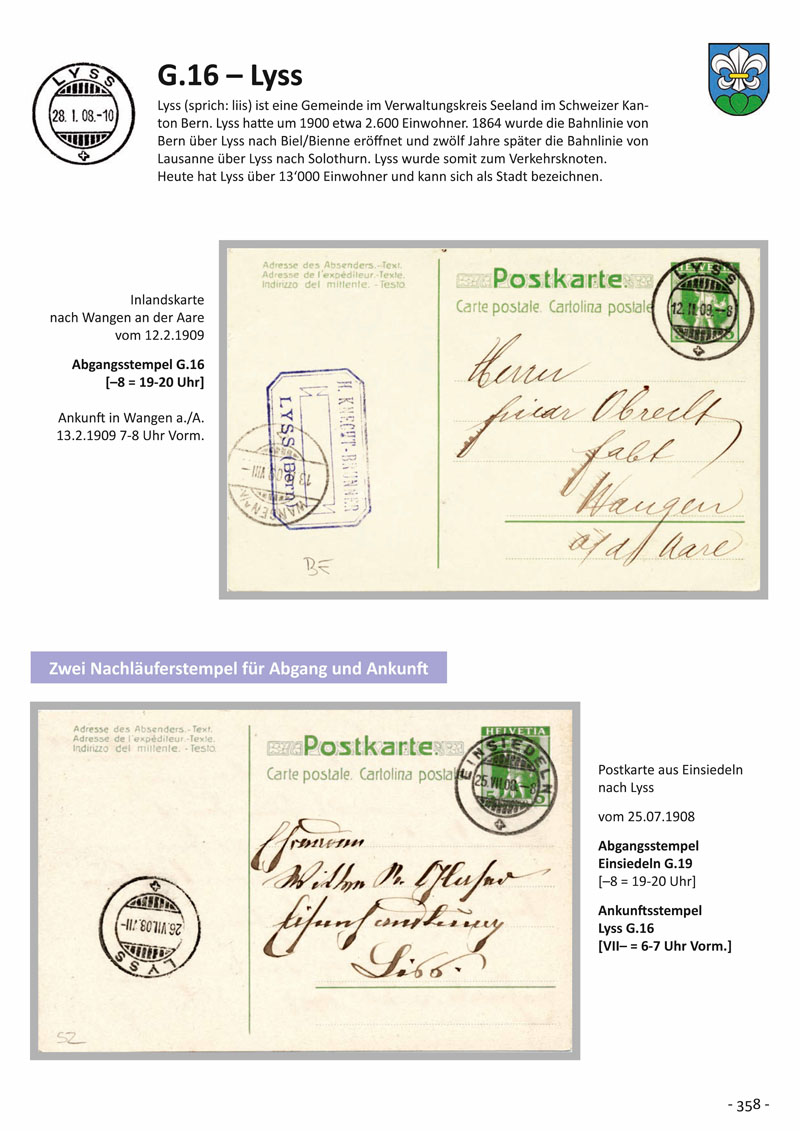 LYSS
28. I. 08.-10
G.16 – Lyss
Lyss (sprich: liis) ist eine Gemeinde im Verwaltungskreis Seeland im Schweizer Kan-
ton Bern. Lyss hatte um 1900 etwa 2.600 Einwohner. 1864 wurde die Bahnlinie von
Bern über Lyss nach Biel/Bienne eröffnet und zwölf Jahre später die Bahnlinie von
Lausanne über Lyss nach Solothurn. Lyss wurde somit zum Verkehrsknoten.
Heute hat Lyss über 13‘000 Einwohner und kann sich als Stadt bezeichnen.
Inlandskarte
nach Wangen an der Aare
vom 12.2.1909
Abgangsstempel G.16
[–8 = 19-20 Uhr]
Ankunft in Wangen a./A.
13.2.1909 7-8 Uhr Vorm.
Adresse des Absenders.-Text.
Adresse de l'expéditeur.-Texte.
Indirizzo del mittente. -Testo.
Postkarte
Carte postale. Cartolina postale
LYSS
12. II. 09.–8
Herrn
Obrecht
Wangen
a/d Aare
H. KNECHT-BRUNNER
LYSS (Bern)
BE
Zwei Nachläuferstempel für Abgang und Ankunft
Adresse des Absenders.-Text.
Adresse de l'expéditeur.-Texte.
Indirizzo del mittente. -Testo.
Postkarte.
Carte postale. Cartolina postale
HELVETIA
EINSIEDELN
25.VII.08.–8
Eisenhandlung
Liss.
LYSS
26.VII.08.VII–
SZ
Postkarte aus Einsiedeln
nach Lyss
vom 25.07.1908
Abgangsstempel
Einsiedeln G.19
[–8 = 19-20 Uhr]
Ankunftsstempel
Lyss G.16
[VII– = 6-7 Uhr Vorm.]
- 358 -